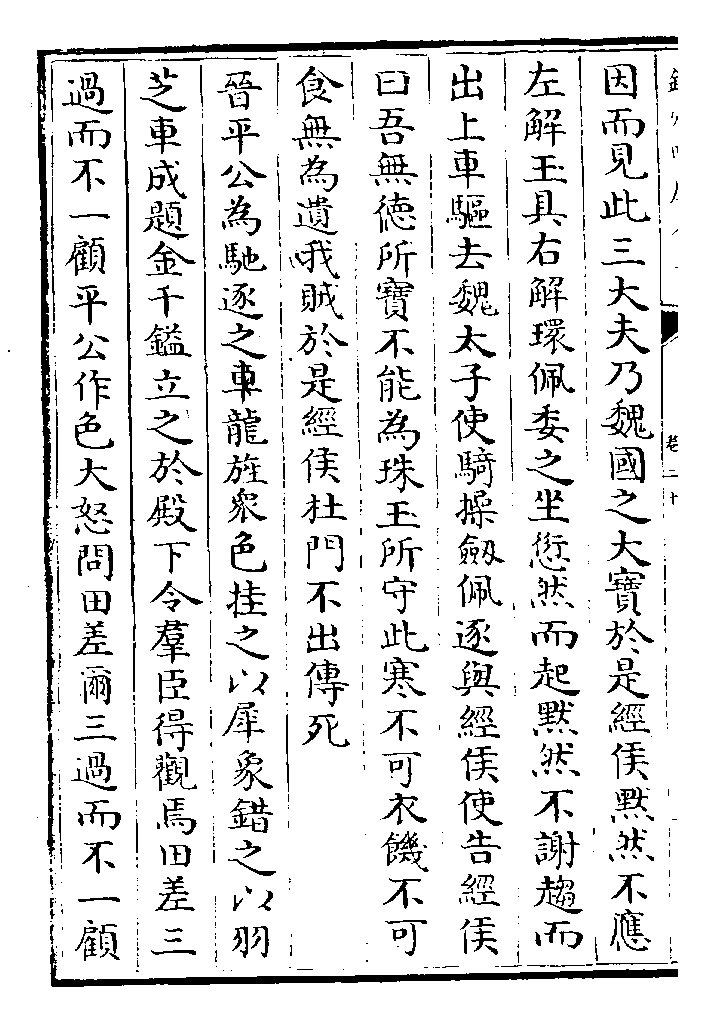 因而見此三大夫乃魏國之大寶於是經侯默然不應
左解玉具右解環佩委之坐愆然而起默然不謝趨而
出上車驅去魏太子使騎操劔佩逐與經侯使告經侯
曰吾無德所寶不能為珠玉所守此寒不可衣饑不可
食無為遺我賊於是經侯杜門不出傳死
晉平公為馳逐之車龍旌衆色挂之以犀象錯之以羽
芝車成題金千鎰立之於殿下令羣臣得觀焉田差三
過而不一顧平公作色大怒問田差爾三過而不一顧
卷二十